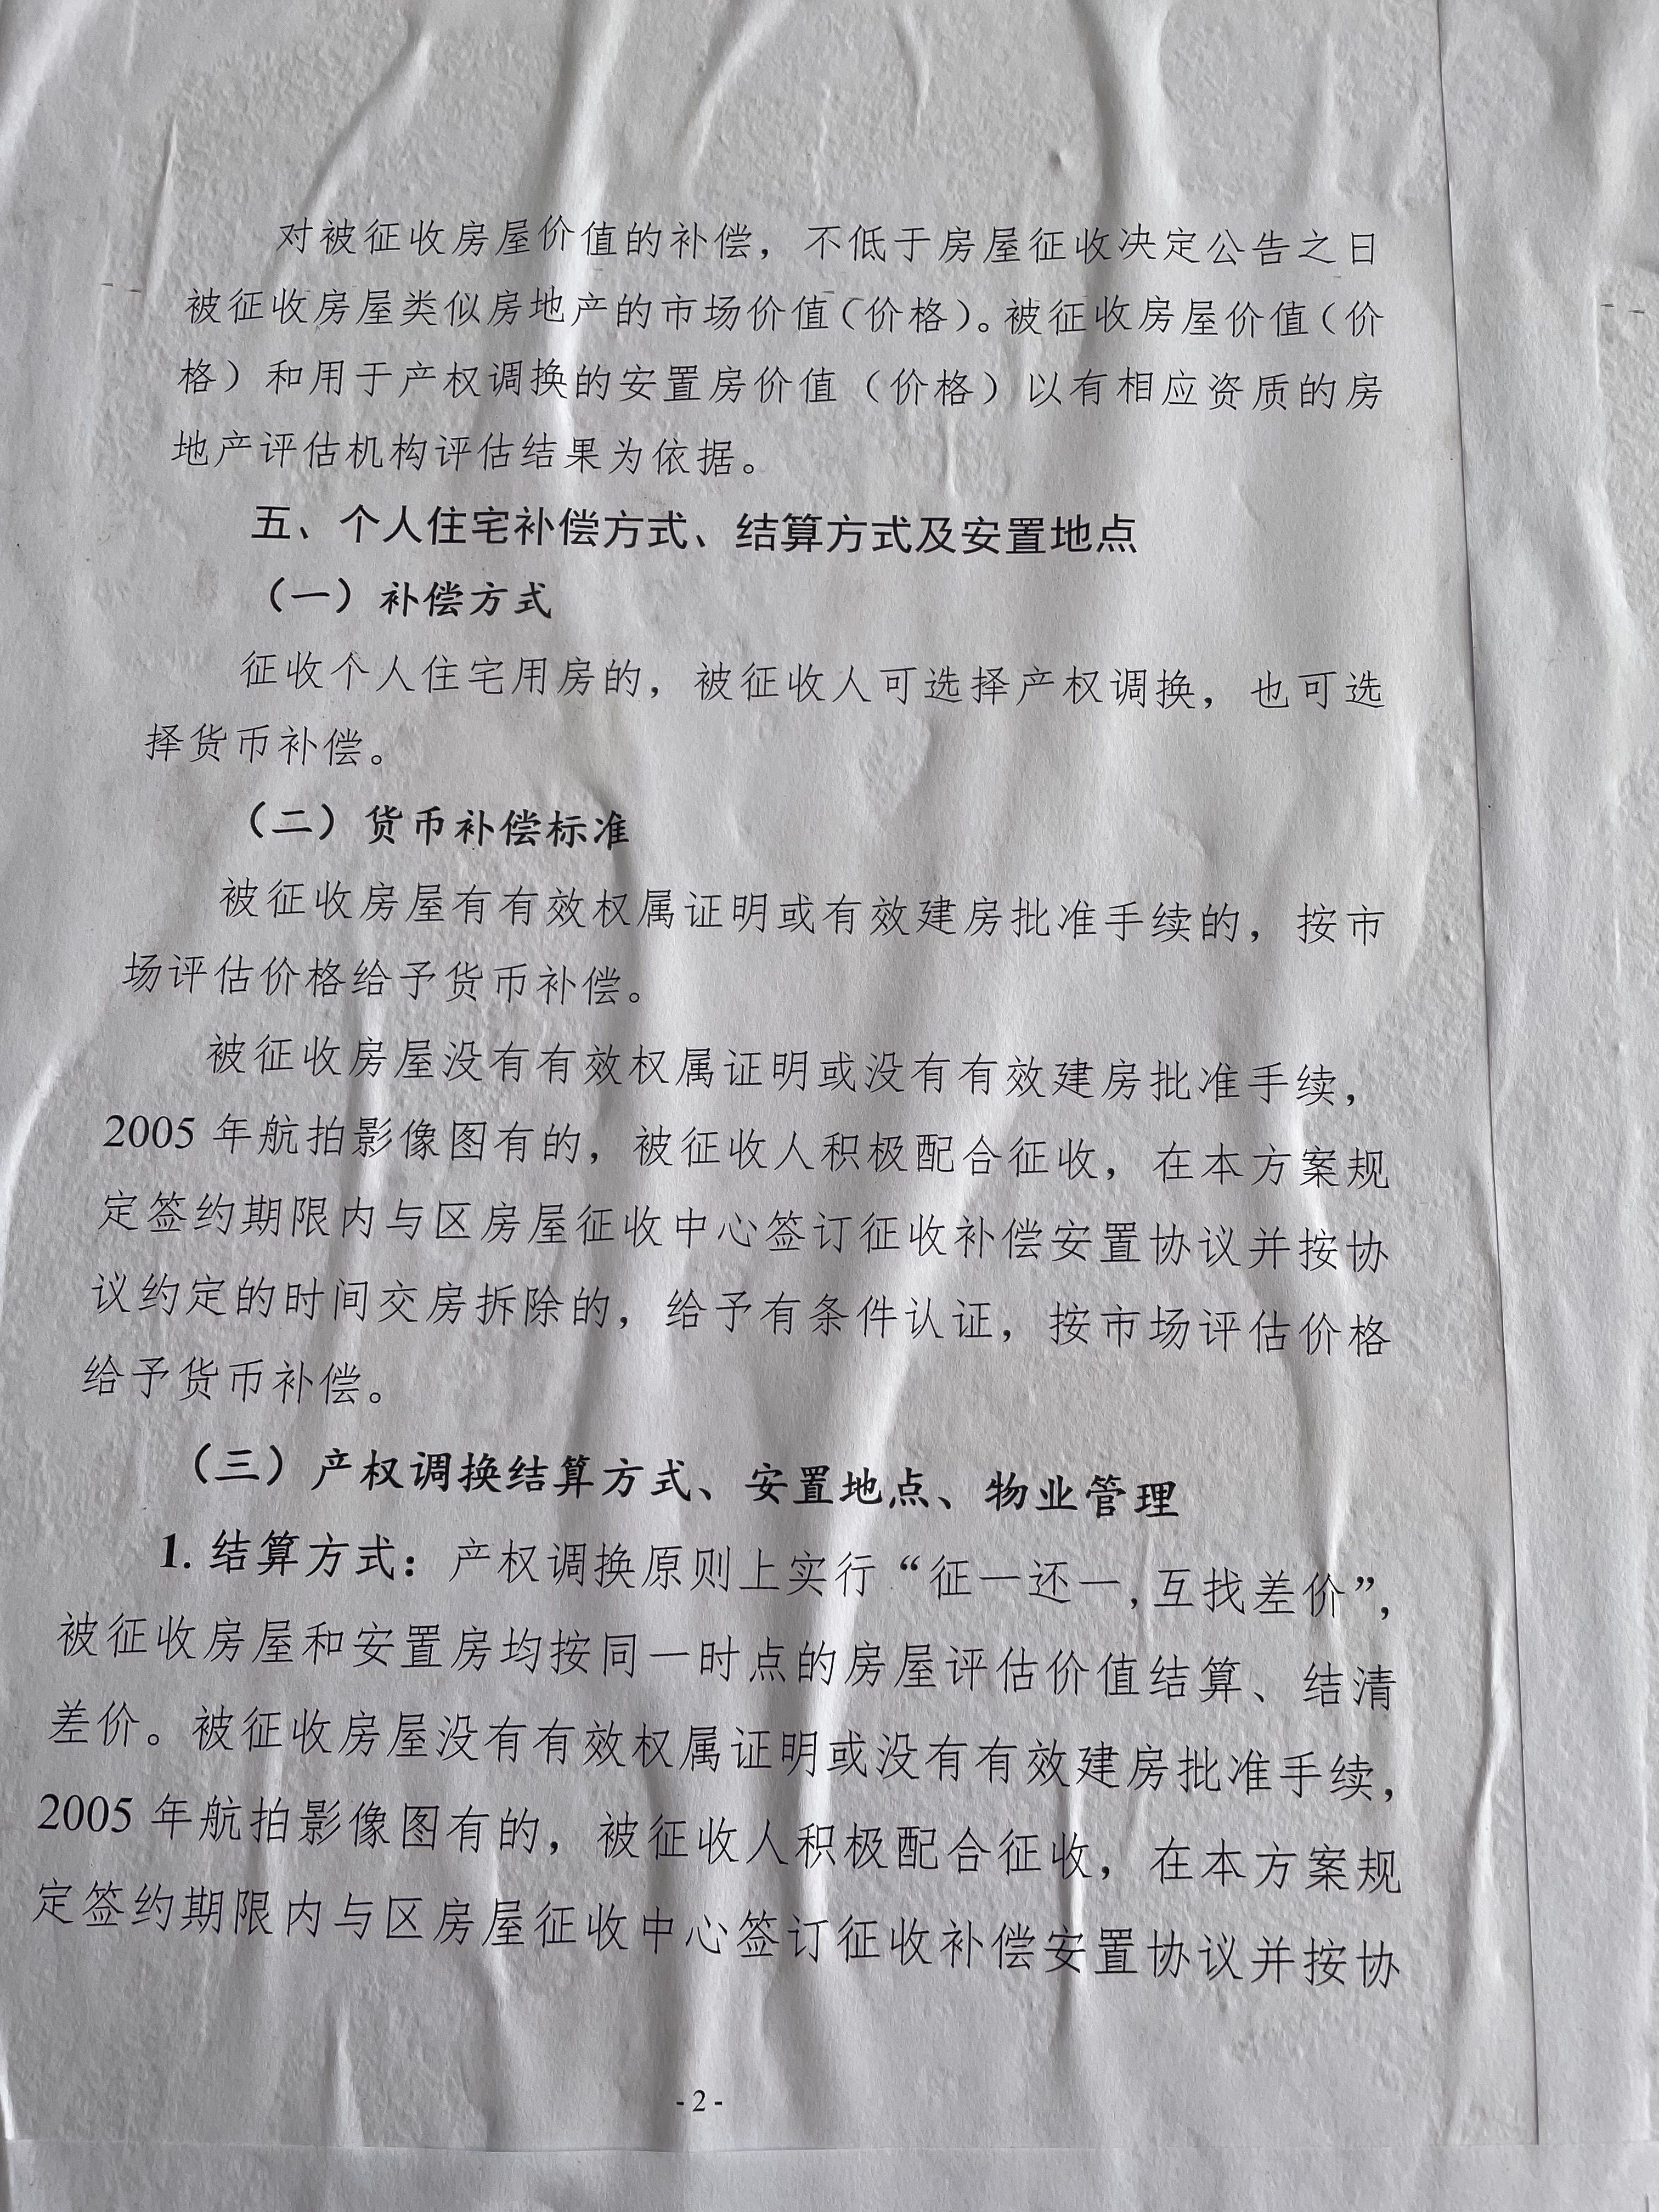 对被征收房屋价值的补偿，不低于房屋征收决定公告之日
被征收房屋类似房地产的市场价值（价格）。被征收房屋价值（价
格）和用于产权调换的安置房价值（价格）以有相应资质的房
地产评估机构评估结果为依据。
五、个人住宅补偿方式、结算方式及安置地点
（一）补偿方式
征收个人住宅用房的，被征收人可选择产权调换，也可选
择货币补偿。
（二）货币补偿标准
被征收房屋有有效权属证明或有效建房批准手续的，按市
场评估价格给予货币补偿。
被征收房屋没有有效权属证明或没有有效建房批准手续，
2005 年航拍影像图有的，被征收人积极配合征收，在本方案规
定签约期限内与区房屋征收中心签订征收补偿安置协议并按协
议约定的时间交房拆除的，给予有条件认证，按市场评估价格
给予货币补偿。
（三）产权调换结算方式、安置地点、物业管理
1. 结算方式：产权调换原则上实行“征一还一,互找差价”，
被征收房屋和安置房均按同一时点的房屋评估价值结算、结清
差价。被征收房屋没有有效权属证明或没有有效建房批准手续，
2005 年航拍影像图有的，被征收人积极配合征收，在本方案规
定签约期限内与区房屋征收中心签订征收补偿安置协议并按协
- 2 -